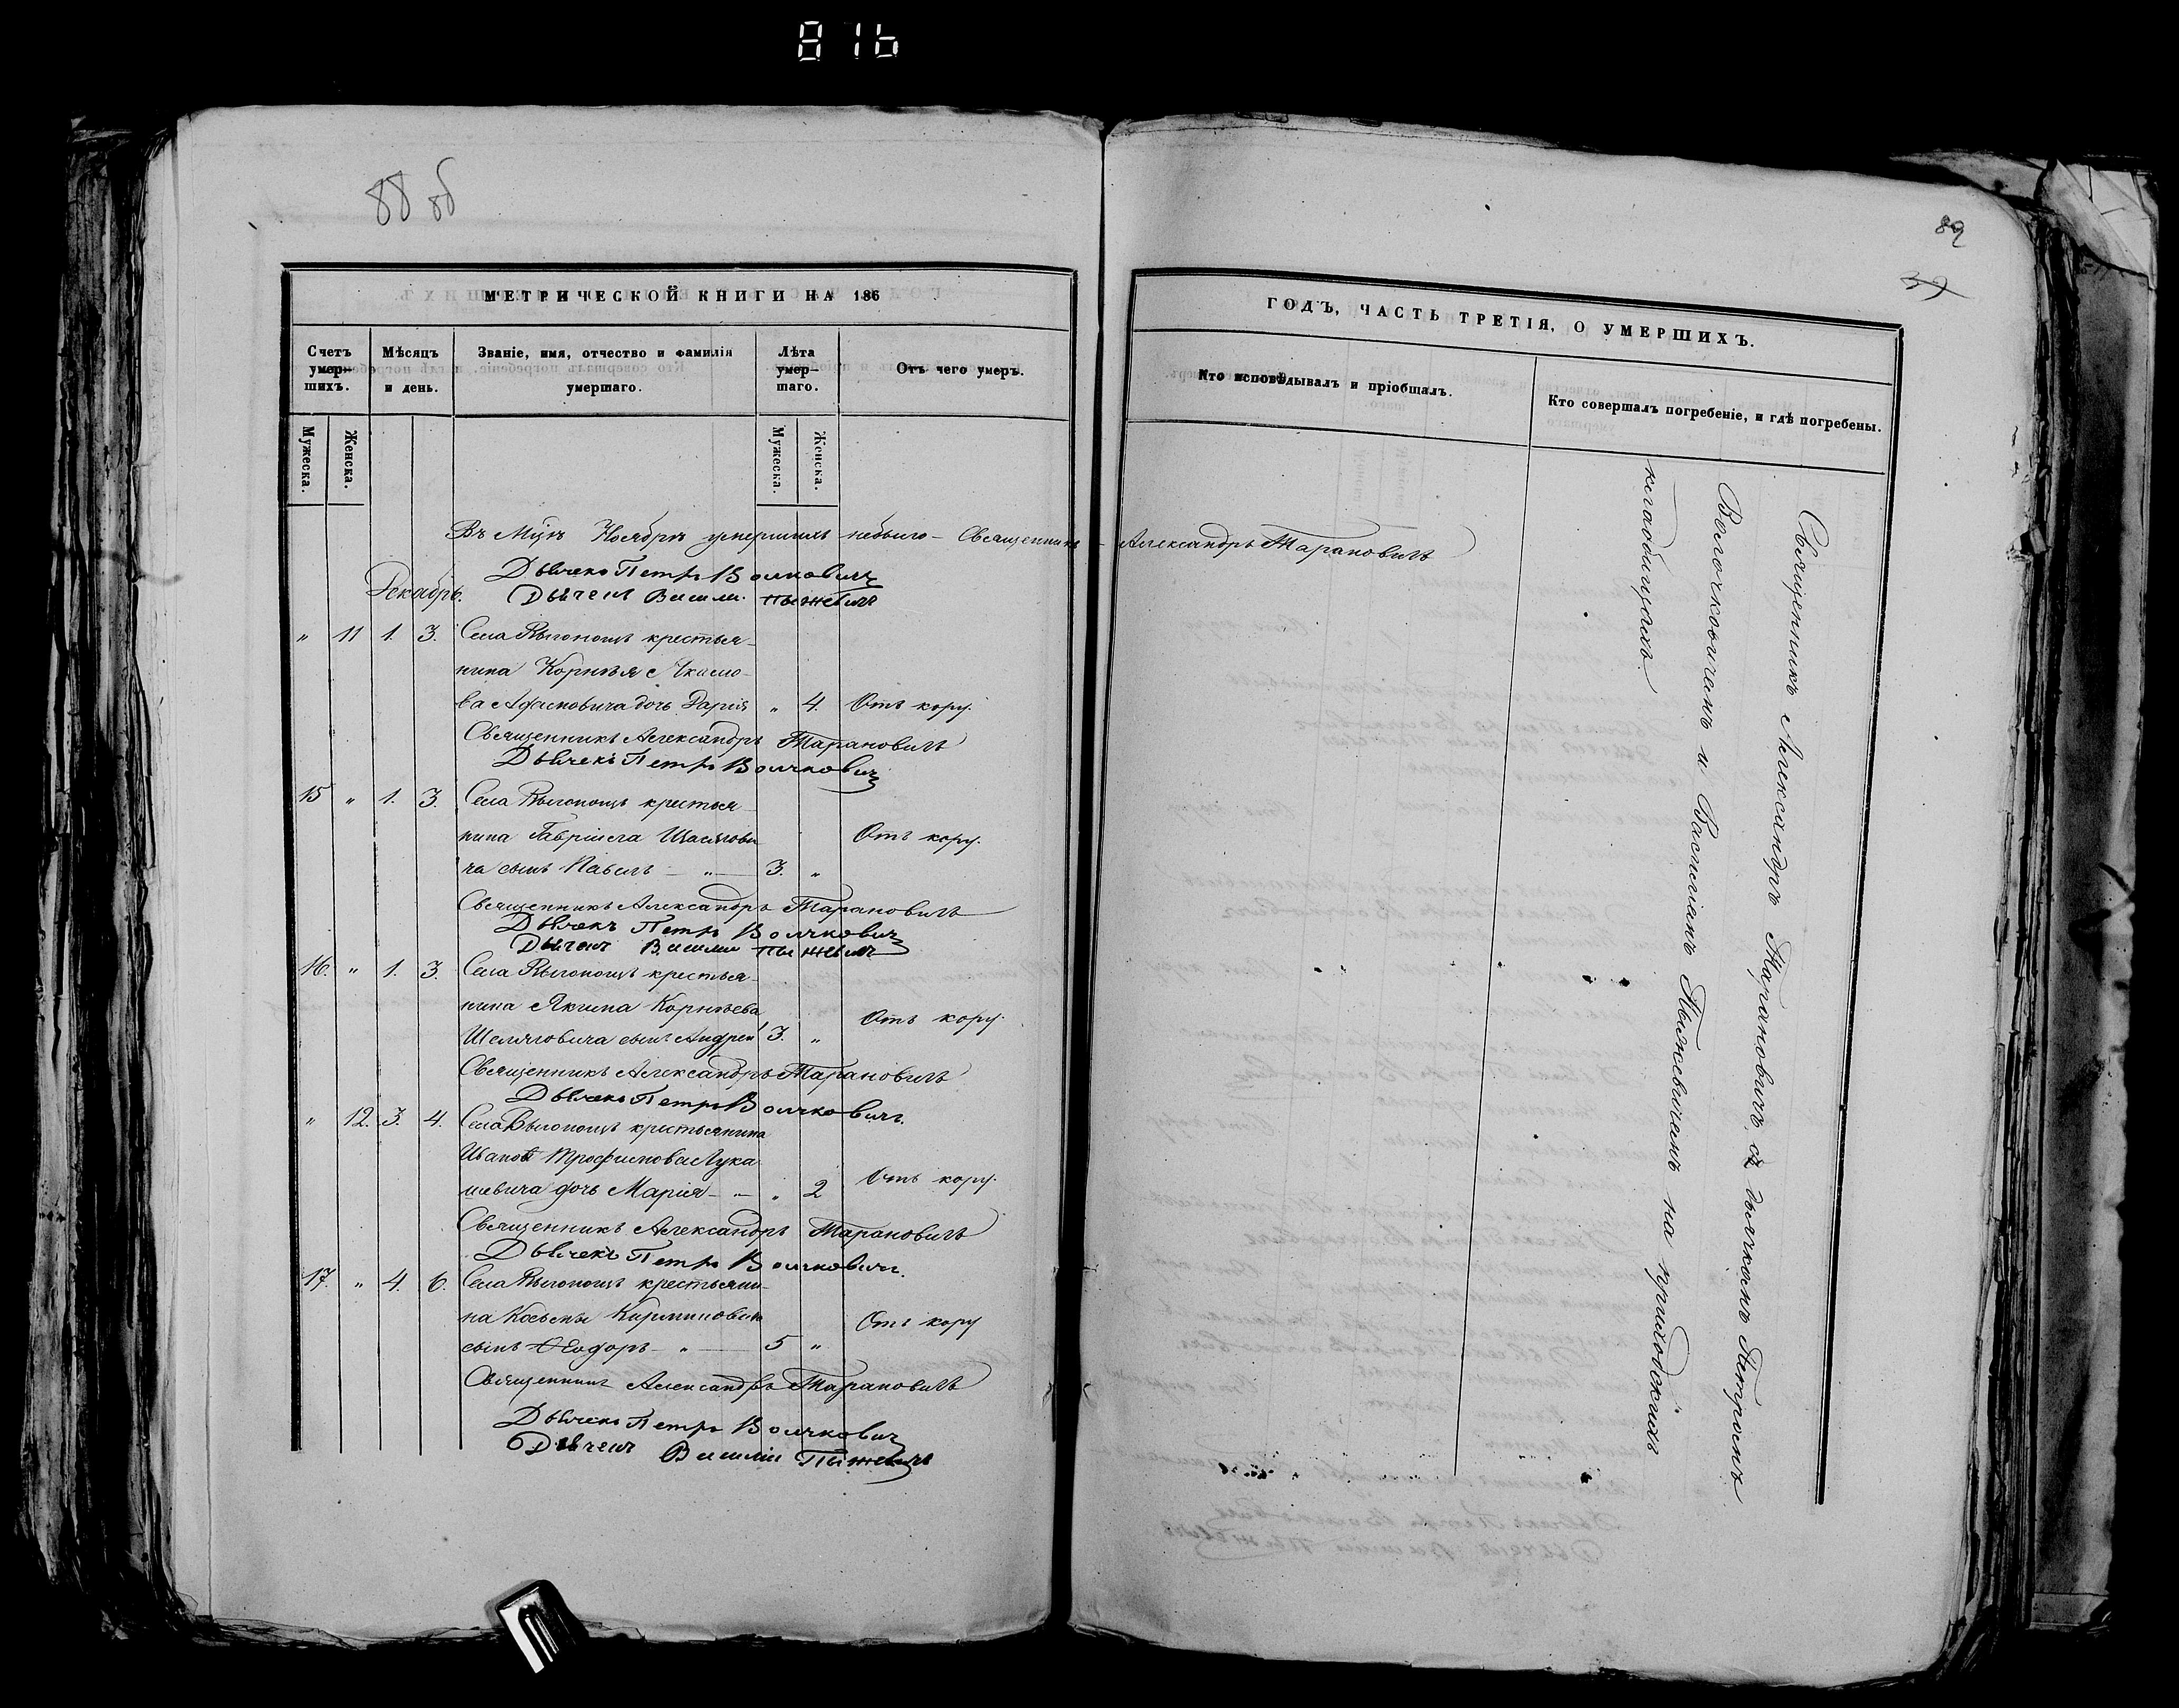 816
88 об
89
39
МЕТРИЧЕСКОЙ КНИГИ НА 186
ГОДЪ, ЧАСТЬ ТРЕТІЯ, О УМЕРШИХЪ.
Счетъ умер-шихъ.
Мѣсяцъ и день.
Званіе, имя, отчество и фамилія умершаго.
Лѣта умер-шаго.
Отъ чего умеръ.
Кто исповѣдывалъ и пріобщалъ.
Кто совершалъ погребеніе, и гдѣ погребены.
Мужеска.
Женска.
Мужеска.
Женска.
Въ Ноябрѣ умершихъ небыло – Священникъ – Александръ Тарановичъ
Дьячекъ Петръ Волчковичъ
Декабрь.
Дьячекъ Пыжевичъ
„ 11 1. 3. Села Выгонощъ крестья-
нина Корнѣя
дочь Дарія „ 4. Отъ кору.
Священникъ Александръ Тарановичъ
Дьячекъ Петръ Волчковичъ
15 „ 1. 3. Села Выгонощъ крестья-
нина Гавріила Отъ кору.
ча сынъ Павелъ – „ – 3. „
Священникъ Александръ Тарановичъ
Дьячекъ Петръ Волчковичъ
Дьячекъ Пыжевичъ
16. „ 1. 3. Села Выгонощъ крестья-
нина Якима Корнѣева Отъ кору.
Шеляговича сынъ Андрей 3. „
Священникъ Александръ Тарановичъ
Дьячекъ Петръ Волчковичъ.
„ 12. 3. 4. Села Выгонощъ крестьянина
Ивана Трофимова Лука-
шевича дочь Марія – „ – „ 2 Отъ кору.
Священникъ Александръ Тарановичъ
Дьячекъ Петръ Волчковичъ.
17. „ 4. 6. Села Выгонощъ крестьяни-
на Косьмы Отъ кору
сынъ Ѳеодоръ – „ – 5 „
Священникъ Александръ Тарановичъ
Дьячекъ Петръ Волчковичъ
Дьячекъ Пыжевичъ
Священникъ Александръ Тарановичъ съ дьячкомъ Петромъ
Волочковичемъ и Василіемъ Пыжевичемъ на приходскихъ
кладбищахъ.